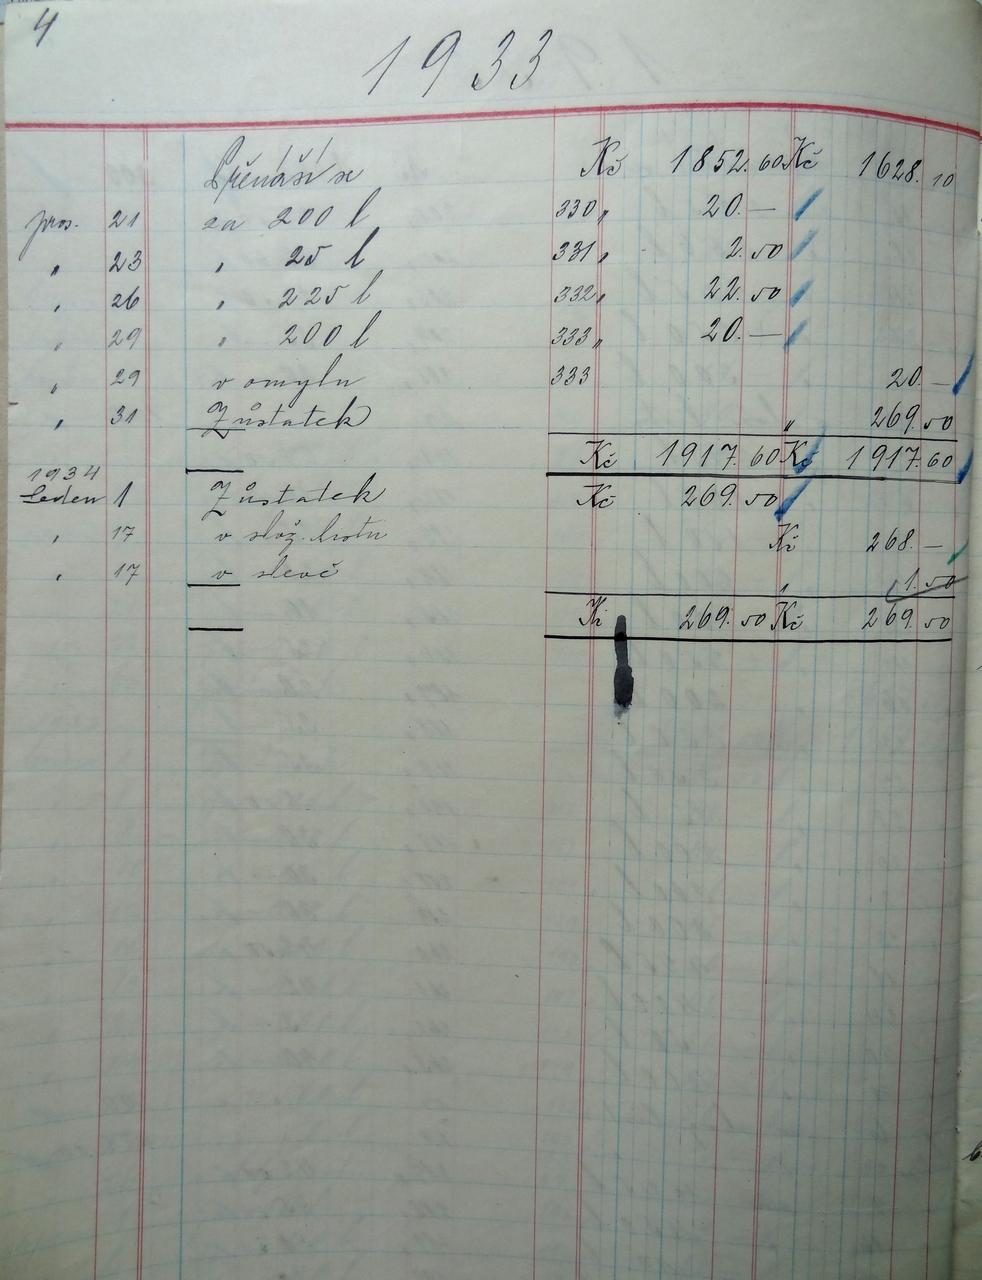 4
1933
Přenáší se Kč 1852.60 Kč 1628.10
pros. 21 za 200 l 330 „ 20.—
„ 23 „ 25 l 331 „ 2.50
„ 26 „ 225 l 332 „ 22.50
„ 29 „ 200 l 333 „ 20.—
„ 29 v omylu 333 20.—
„ 31 Zůstatek „ 269.50
Kč 1917.60 Kč 1917.60
1934
Leden 1 Zůstatek Kč 269.50
„ 17 v slož. listu Kč 268.—
„ 17 v slevě „ 1.50
Kč 269.50 Kč 269.50